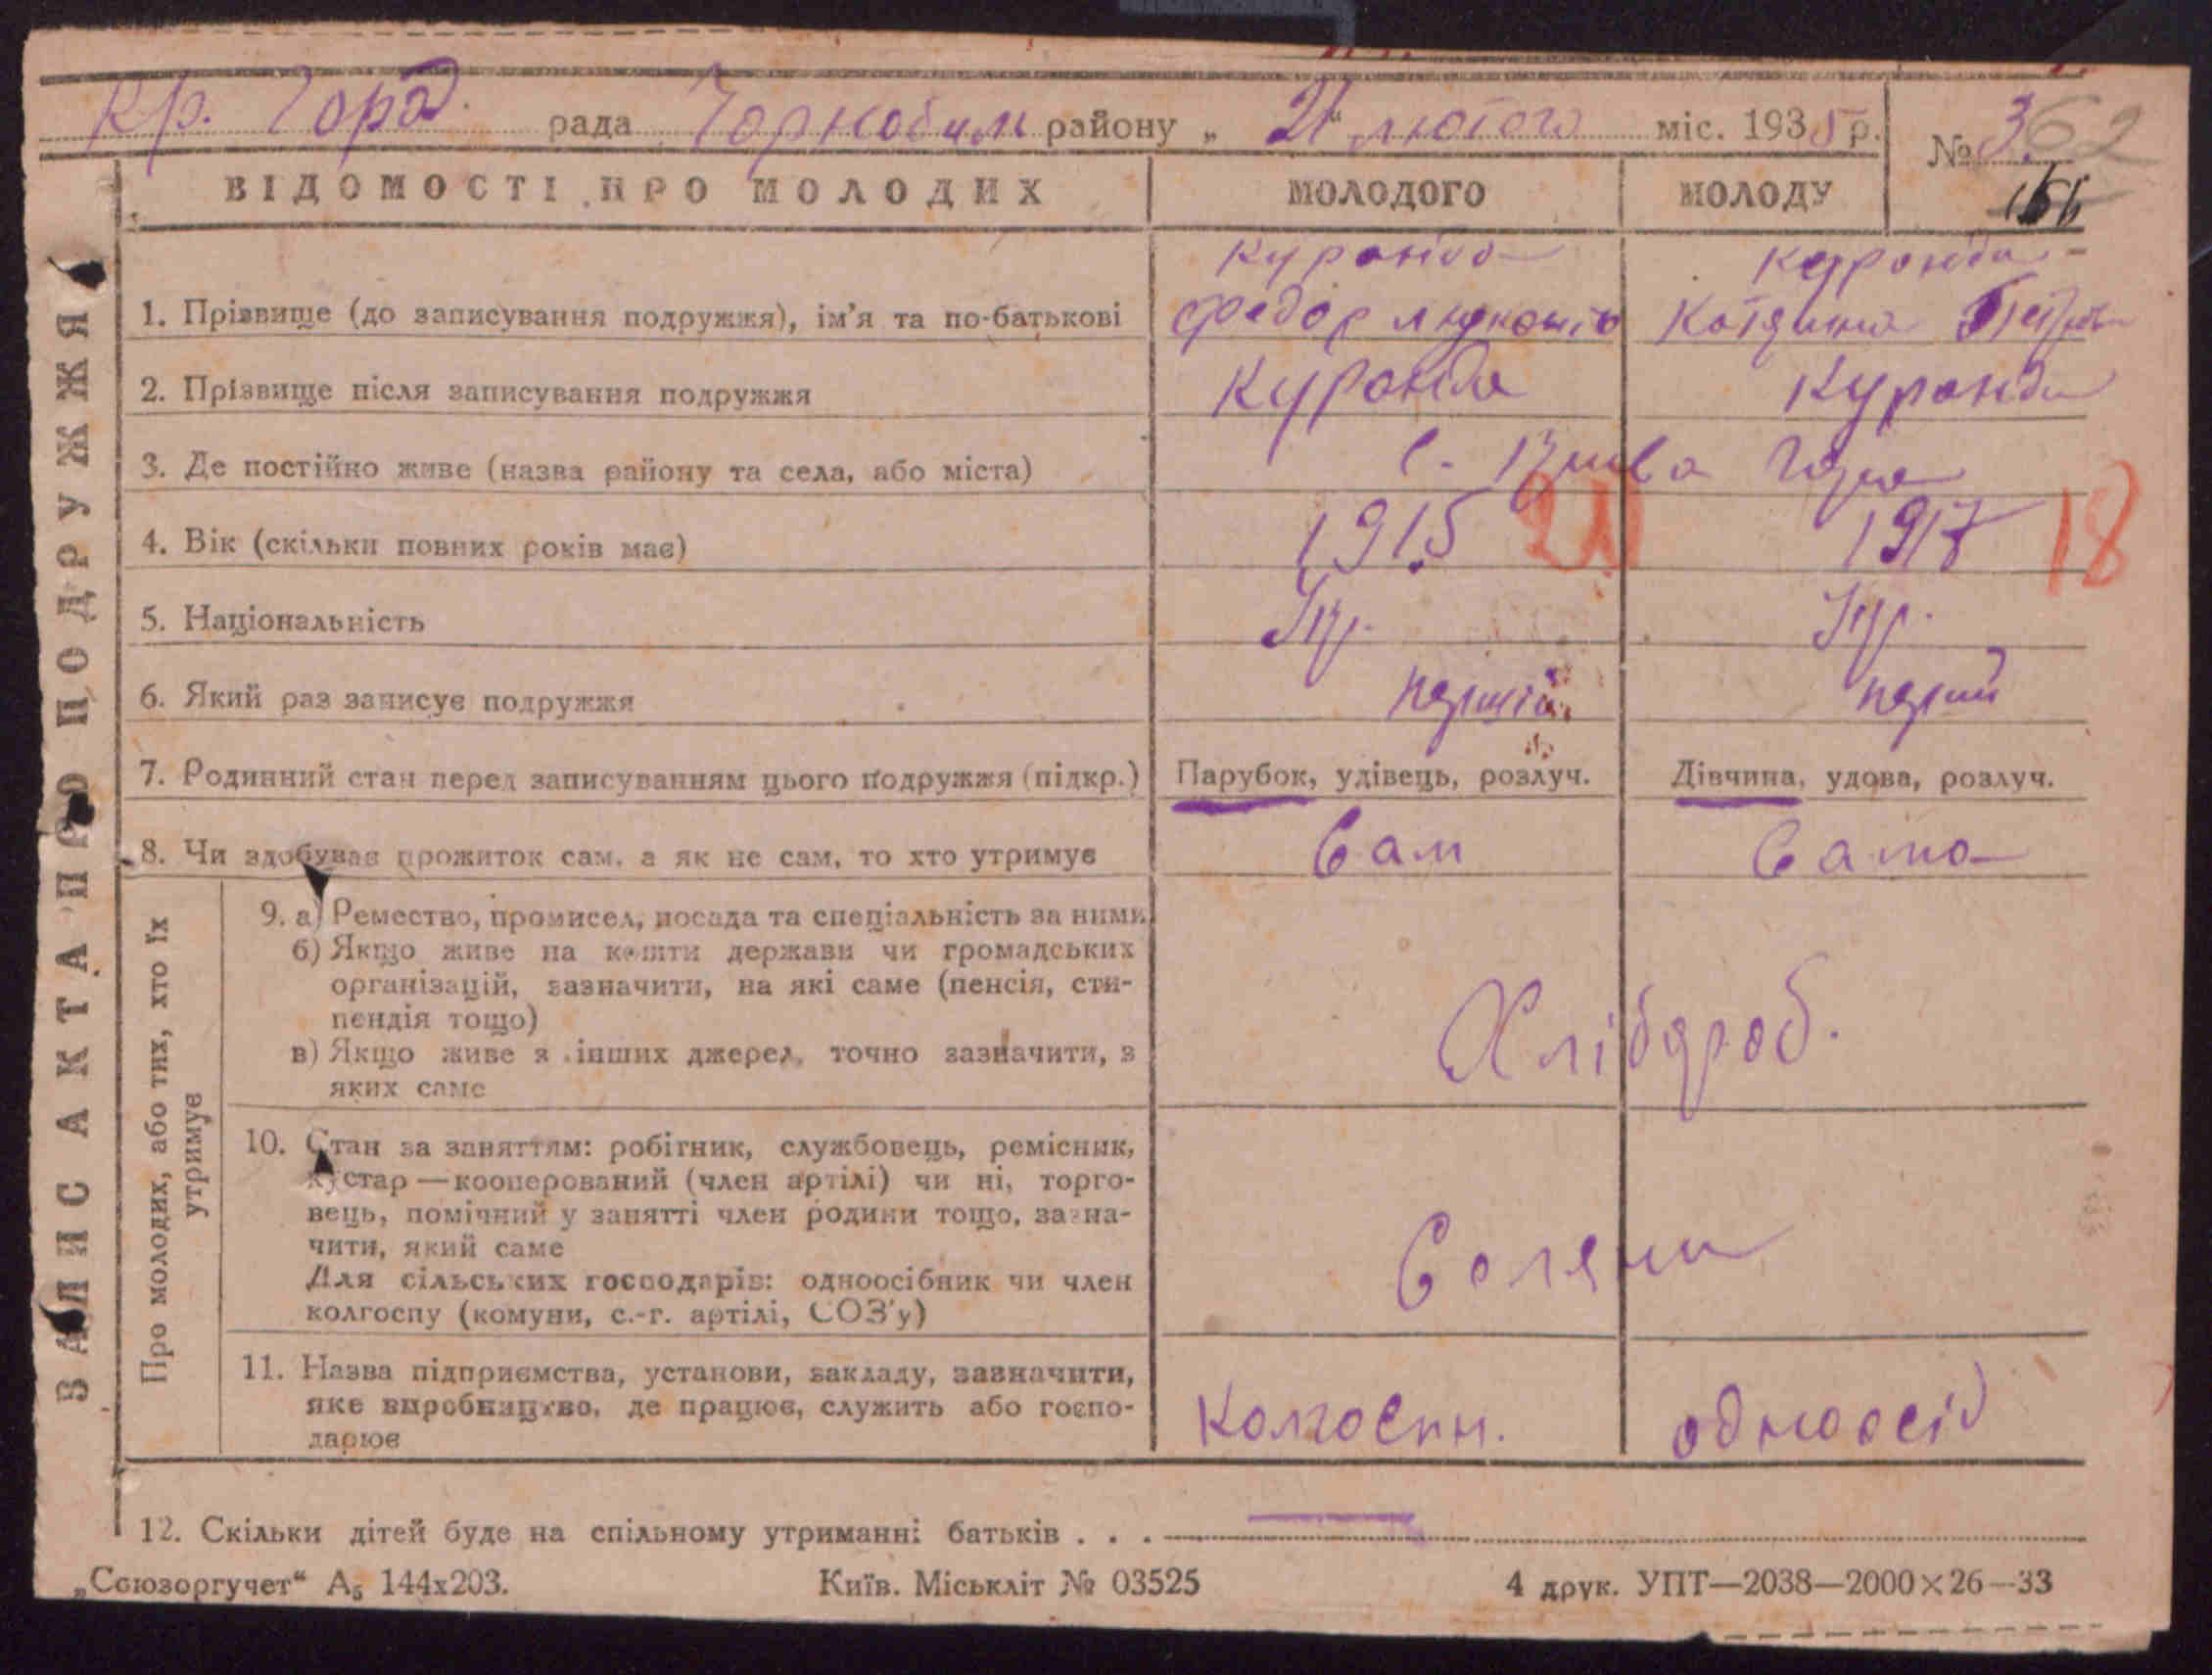 Кр. Гора рада Чорнобил району „ 21 " лютого міс. 1935 р.
№ 3. 62
ВІДОМОСТІ ПРО МОЛОДИХ МОЛОДОГО МОЛОДУ
ЗАПИС АКТА ПРО ПОДРУЖЖЯ
Куранда Куранда
1. Прізвище (до записування подружжя), ім'я та по-батькові Федор Катярина Петров
2. Прізвище після записування подружжя Куранда Куранда
3. Де постійно живе (назва району та села, або міста) с. Крива Гора
4. Вік (скільки повних років має) 1915 21 1917 18
5. Національність Укр. Укр.
6. Який раз записує подружжя первий перший
7. Родинний стан перед записуванням цього подружжя (підкр.) Парубок, удівець, розлуч. Дівчина, удова, розлуч.
8. Чи здобував прожиток сам, а як не сам, то хто утримує Сам Сама
Про молодих, або тих, хто їх
утримує
9. а) Ремество, промисел, посада та спеціальність за ними
б) Якщо живе на кошти держави чи громадських
організацій, зазначити, на які саме (пенсія, сти-
пендія тощо)
в) Якщо живе з інших джерел, точно зазначити, з
яких саме
Хлібороб.
10. Стан за заняттям: робітник, службовець, ремісник,
кустар — кооперований (член артілі) чи ні, торго-
вець, помічний у занятті член родини тощо, зазна-
чити, який саме
Для сільських господарів: одноосібник чи член
колгоспу (комуни, с.-г. артілі, СОЗ'у)
Селяни
11. Назва підприємства, установи, закладу, зазначити,
яке виробництво, де працює, служить або госпо-
дарює
Колгоспн. одноосід
12. Скільки дітей буде на спільному утриманні батьків . . . —
„Союзоргучет“ А5 144х203. Київ. Міськліт № 03525 4 друк. УПТ—2038—2000×26—33